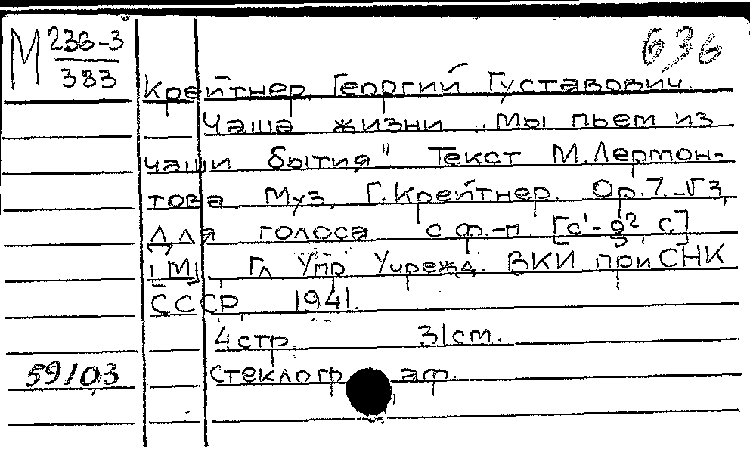 М 236-3
383
636
Крейтнер, Георгий Густавович.
Чаша жизни „Мы пьем из
чаши бытия" Текст М. Лермон-
това Муз. Г. Крейтнер. Ор. 7. №3,
Для голоса с ф.-п [c'-g², c]
[М], Гл Упр Учрежд. ВКИ при СНК
СССР, 1941.
4 стр. 31 см.
59103 Стеклограф.